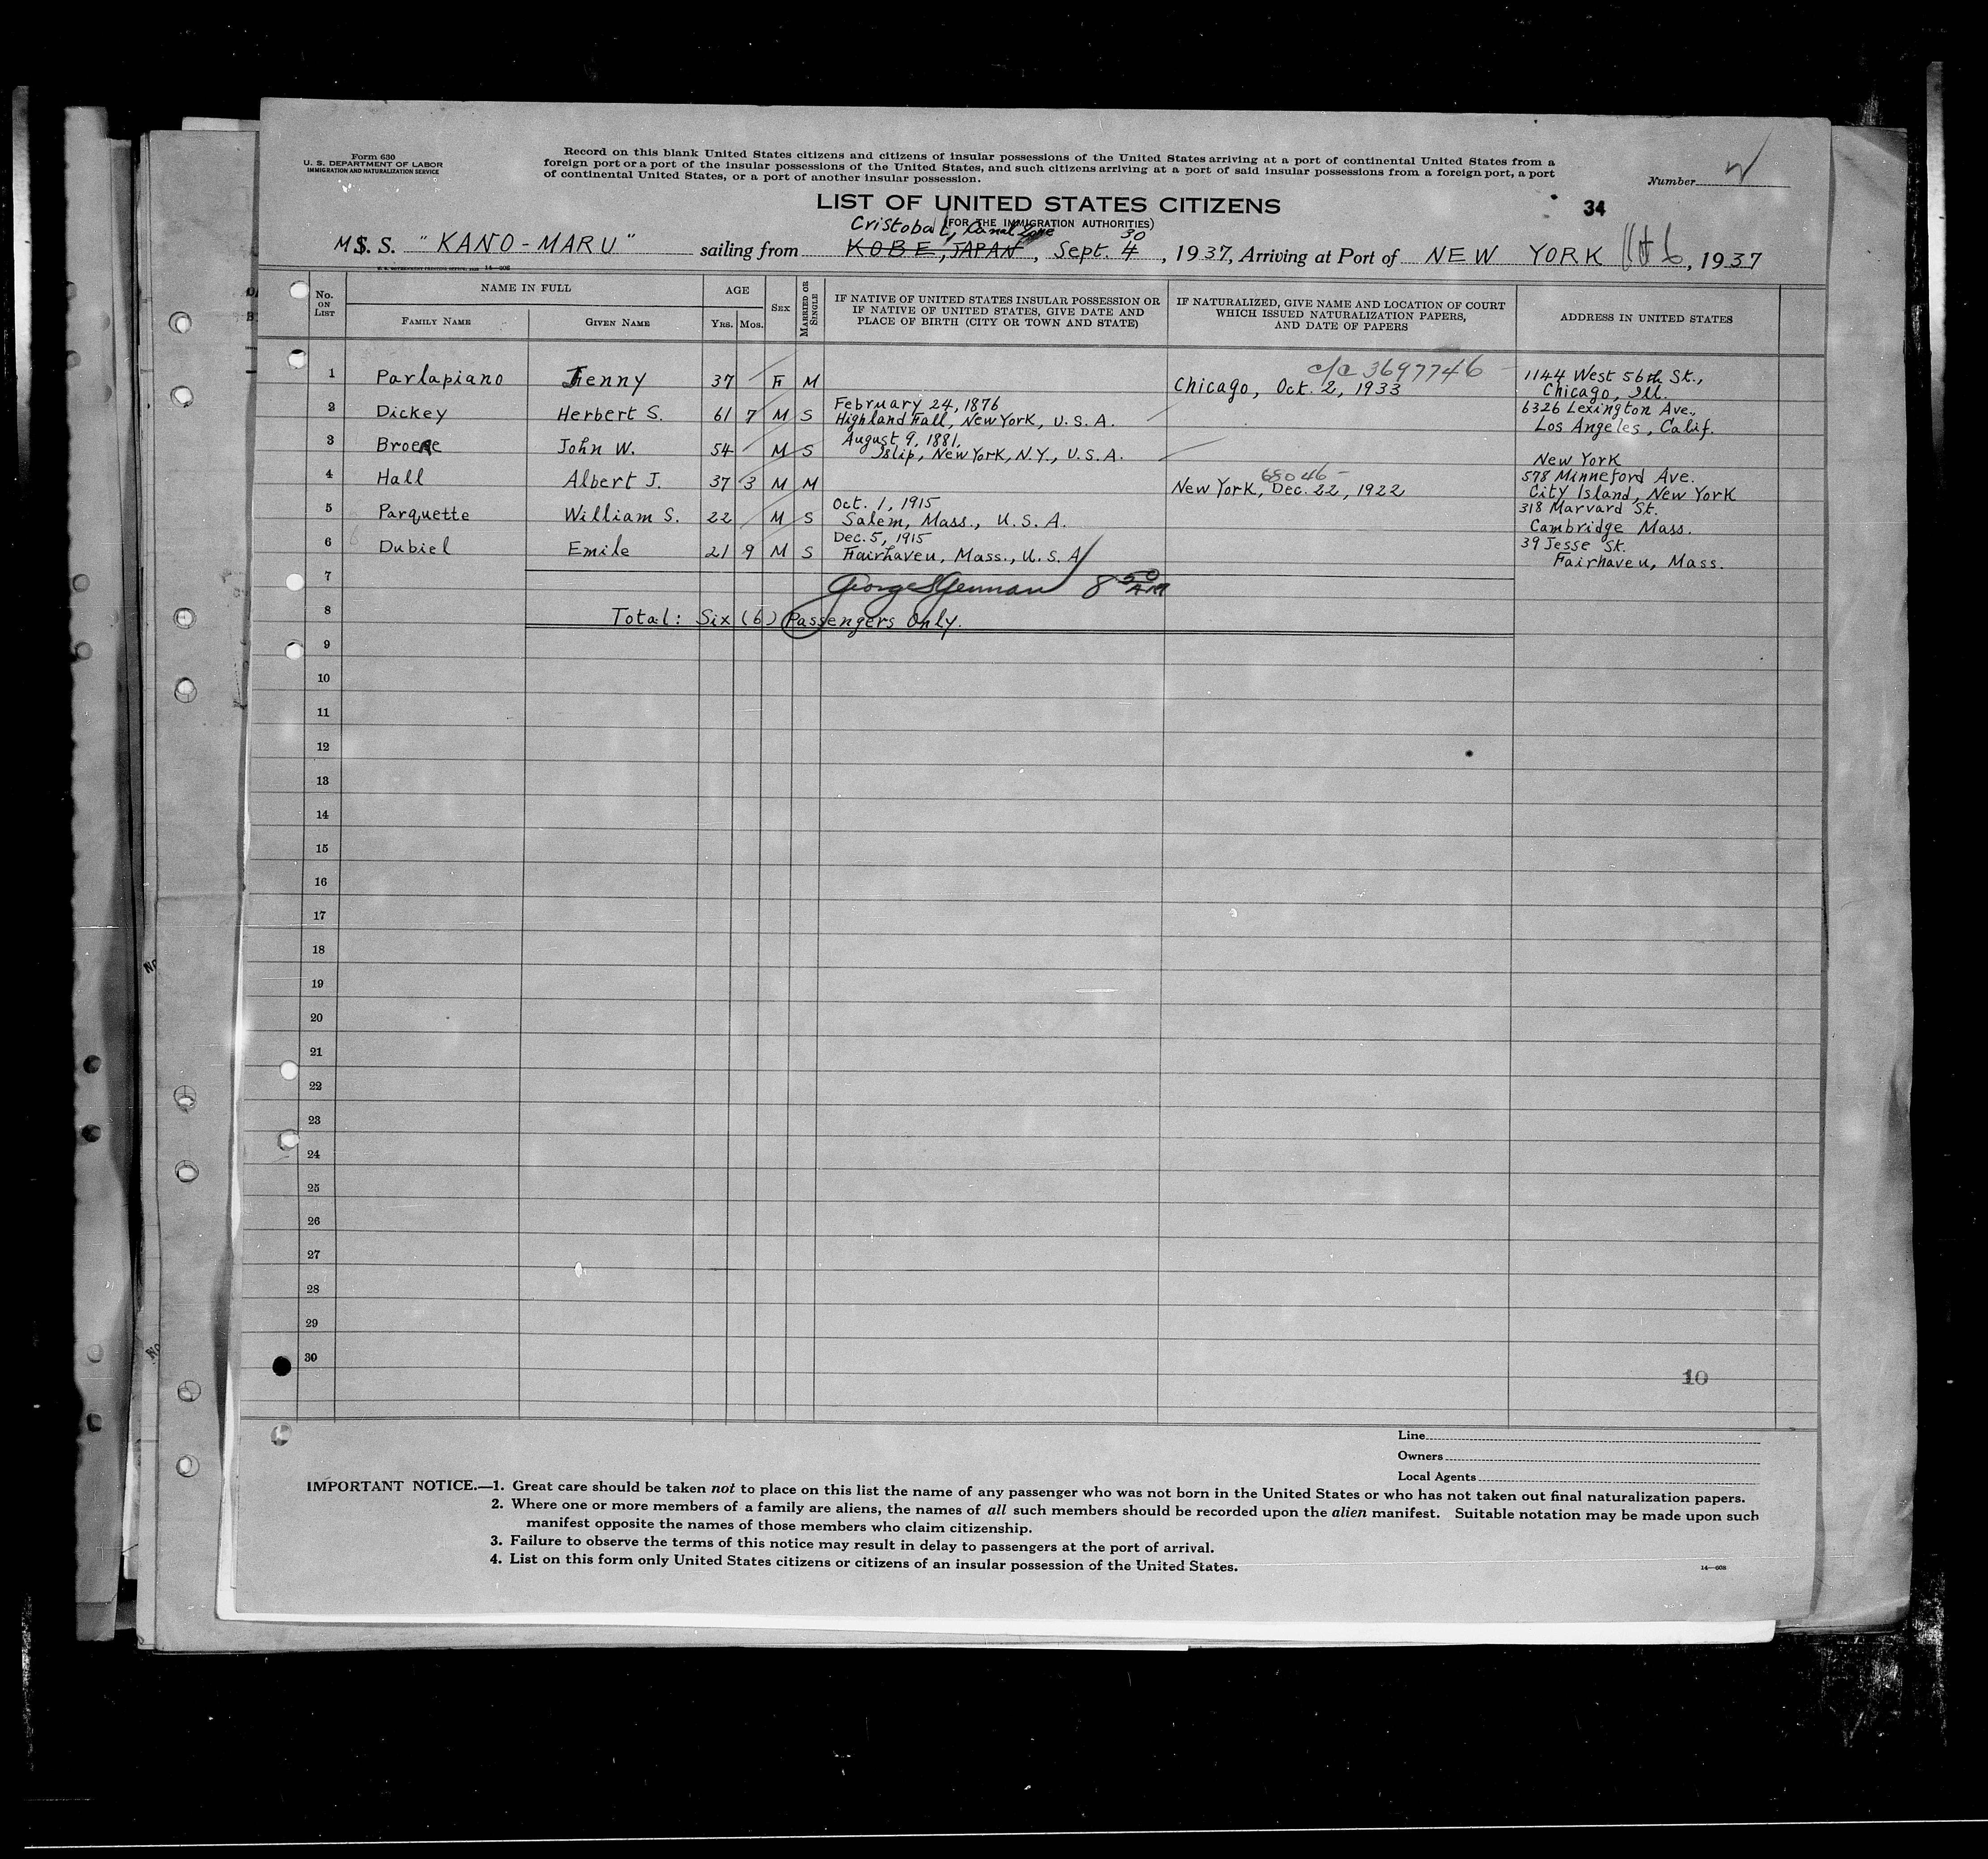 Form 630
U. S. DEPARTMENT OF LABOR
IMMIGRATION AND NATURALIZATION SERVICE
Record on this blank United States citizens and citizens of insular possessions of the United States arriving at a port of continental United States from a
foreign port or a port of the insular possessions of the United States, and such citizens arriving at a port of said insular possessions from a foreign port, a port
of continental United States, or a port of another insular possession.
Number
34
LIST OF UNITED STATES CITIZENS
(FOR THE IMMIGRATION AUTHORITIES)
Cristobal, Canal Zone 30
M. S. S. "KANO-MARU" sailing from KOBE, JAPAN, Sept. 4, 1937, Arriving at Port of NEW YORK 6, 1937
No. ON LIST
NAME IN FULL
FAMILY NAME GIVEN NAME
AGE
YRS. MOS.
SEX
MARRIED OR SINGLE
IF NATIVE OF UNITED STATES INSULAR POSSESSION OR
IF NATIVE OF UNITED STATES, GIVE DATE AND
PLACE OF BIRTH (CITY OR TOWN AND STATE)
IF NATURALIZED, GIVE NAME AND LOCATION OF COURT
WHICH ISSUED NATURALIZATION PAPERS,
AND DATE OF PAPERS
ADDRESS IN UNITED STATES
c/c 3697746
1 Parlapiano Jenny 37 F M Chicago, Oct. 2, 1933 1144 West 56th St.,
Chicago, Ill.
2 Dickey Herbert S. 61 7 M S February 24, 1876 6326 Lexington Ave.,
Highland Fall, New York, U. S. A. Los Angeles, Calif.
3 John W. 54 M S August 9, 1881,
Islip, New York, N.Y., U. S. A. New York
68046
4 Hall Albert J. 37 3 M M New York, Dec. 22, 1922 578 Minneford Ave.
City Island, New York
5 Parquette William S. 22 M S Oct. 1, 1915 318 Marvard St.
Salem, Mass., U. S. A. Cambridge Mass.
6 Dubiel Emile 21 9 M S Dec. 5, 1915 39 Jesse St.
Fairhaven, Mass., U. S. A. Fairhaven, Mass.
7 8 50 AM
8 Total: Six (6) Passengers Only.
9
10
11
12
13
14
15
16
17
18
19
20
21
22
23
24
25
26
27
28
29
30
10
Line
Owners
Local Agents
IMPORTANT NOTICE.—1. Great care should be taken not to place on this list the name of any passenger who was not born in the United States or who has not taken out final naturalization papers.
2. Where one or more members of a family are aliens, the names of all such members should be recorded upon the alien manifest. Suitable notation may be made upon such
manifest opposite the names of those members who claim citizenship.
3. Failure to observe the terms of this notice may result in delay to passengers at the port of arrival.
4. List on this form only United States citizens or citizens of an insular possession of the United States.
14—608